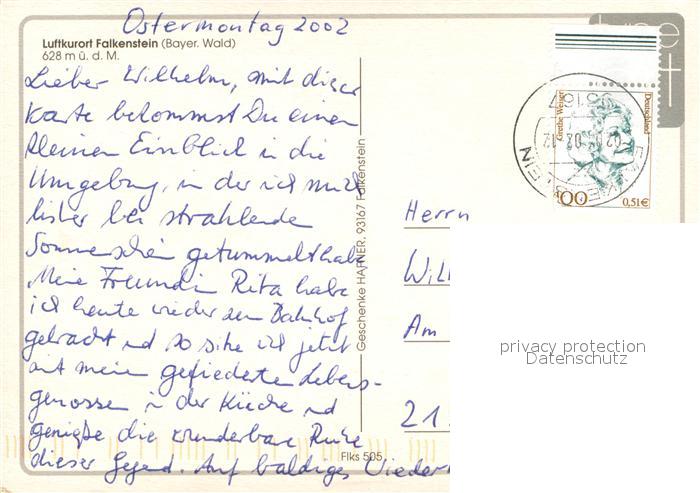 Ostermontag 2002
Luftkurort Falkenstein (Bayer. Wald)
628 m ü. d. M.
Lieber Wilhelm, mit dieser
Karte bekommst Du einen
kleinen Einblick in die
Umgebung, in der ich mich
bisher bei strahlende
Sonnenschein getummelt habe
Meine Freundin Rita habe
ich heute wieder zum Bahnhof
gebracht und so sitze ich jetzt
mit meinen gefiederten Lebens-
genossen in der Küche und
genieße die wunderbare Ruhe
dieser Gegend. Auf baldiges Wieder
Geschenke HAFNER, 93167 Falkenstein
Flks 505
Grethe Weiser
Deutschland
100
0,51€
Herrn
Will
Am
21
privacy protection
Datenschutz